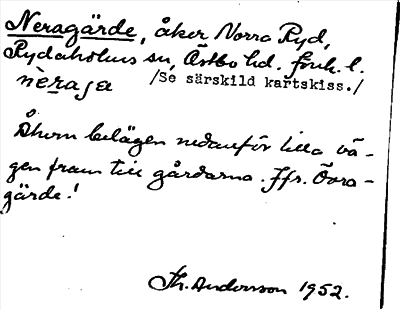 Neragärde, åker Norra Ryd,
Rydaholms sn, Östbo hd. Jönk. l.
neraja /Se särskild kartskiss./
Åkern belägen nedanför lilla vä-
gen fram till gårdarna. Jfr. Övra-
gärde!
Th. Andersson 1952.